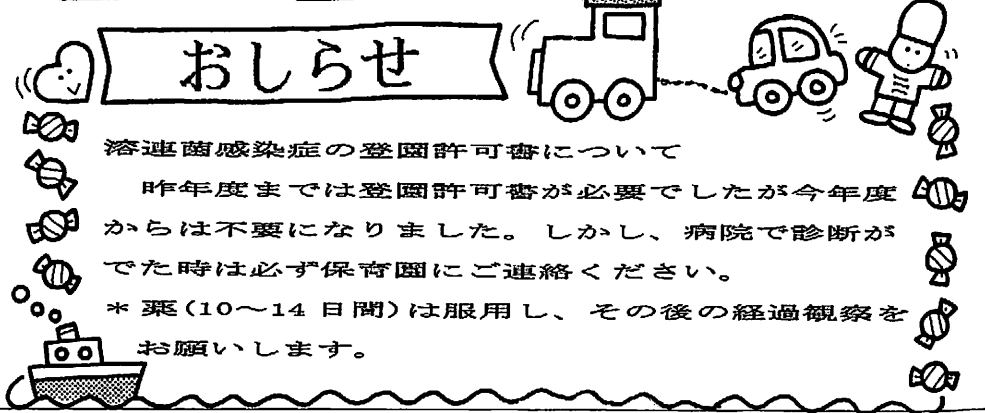 おしらせ
溶連菌感染症の登園許可書について
昨年度までは登園許可書が必要でしたが今年度
からは不要になりました。しかし、病院で診断が
でた時は必ず保育園にご連絡ください。
＊薬(10～14 日間)は服用し、その後の経過観察を
お願いします。